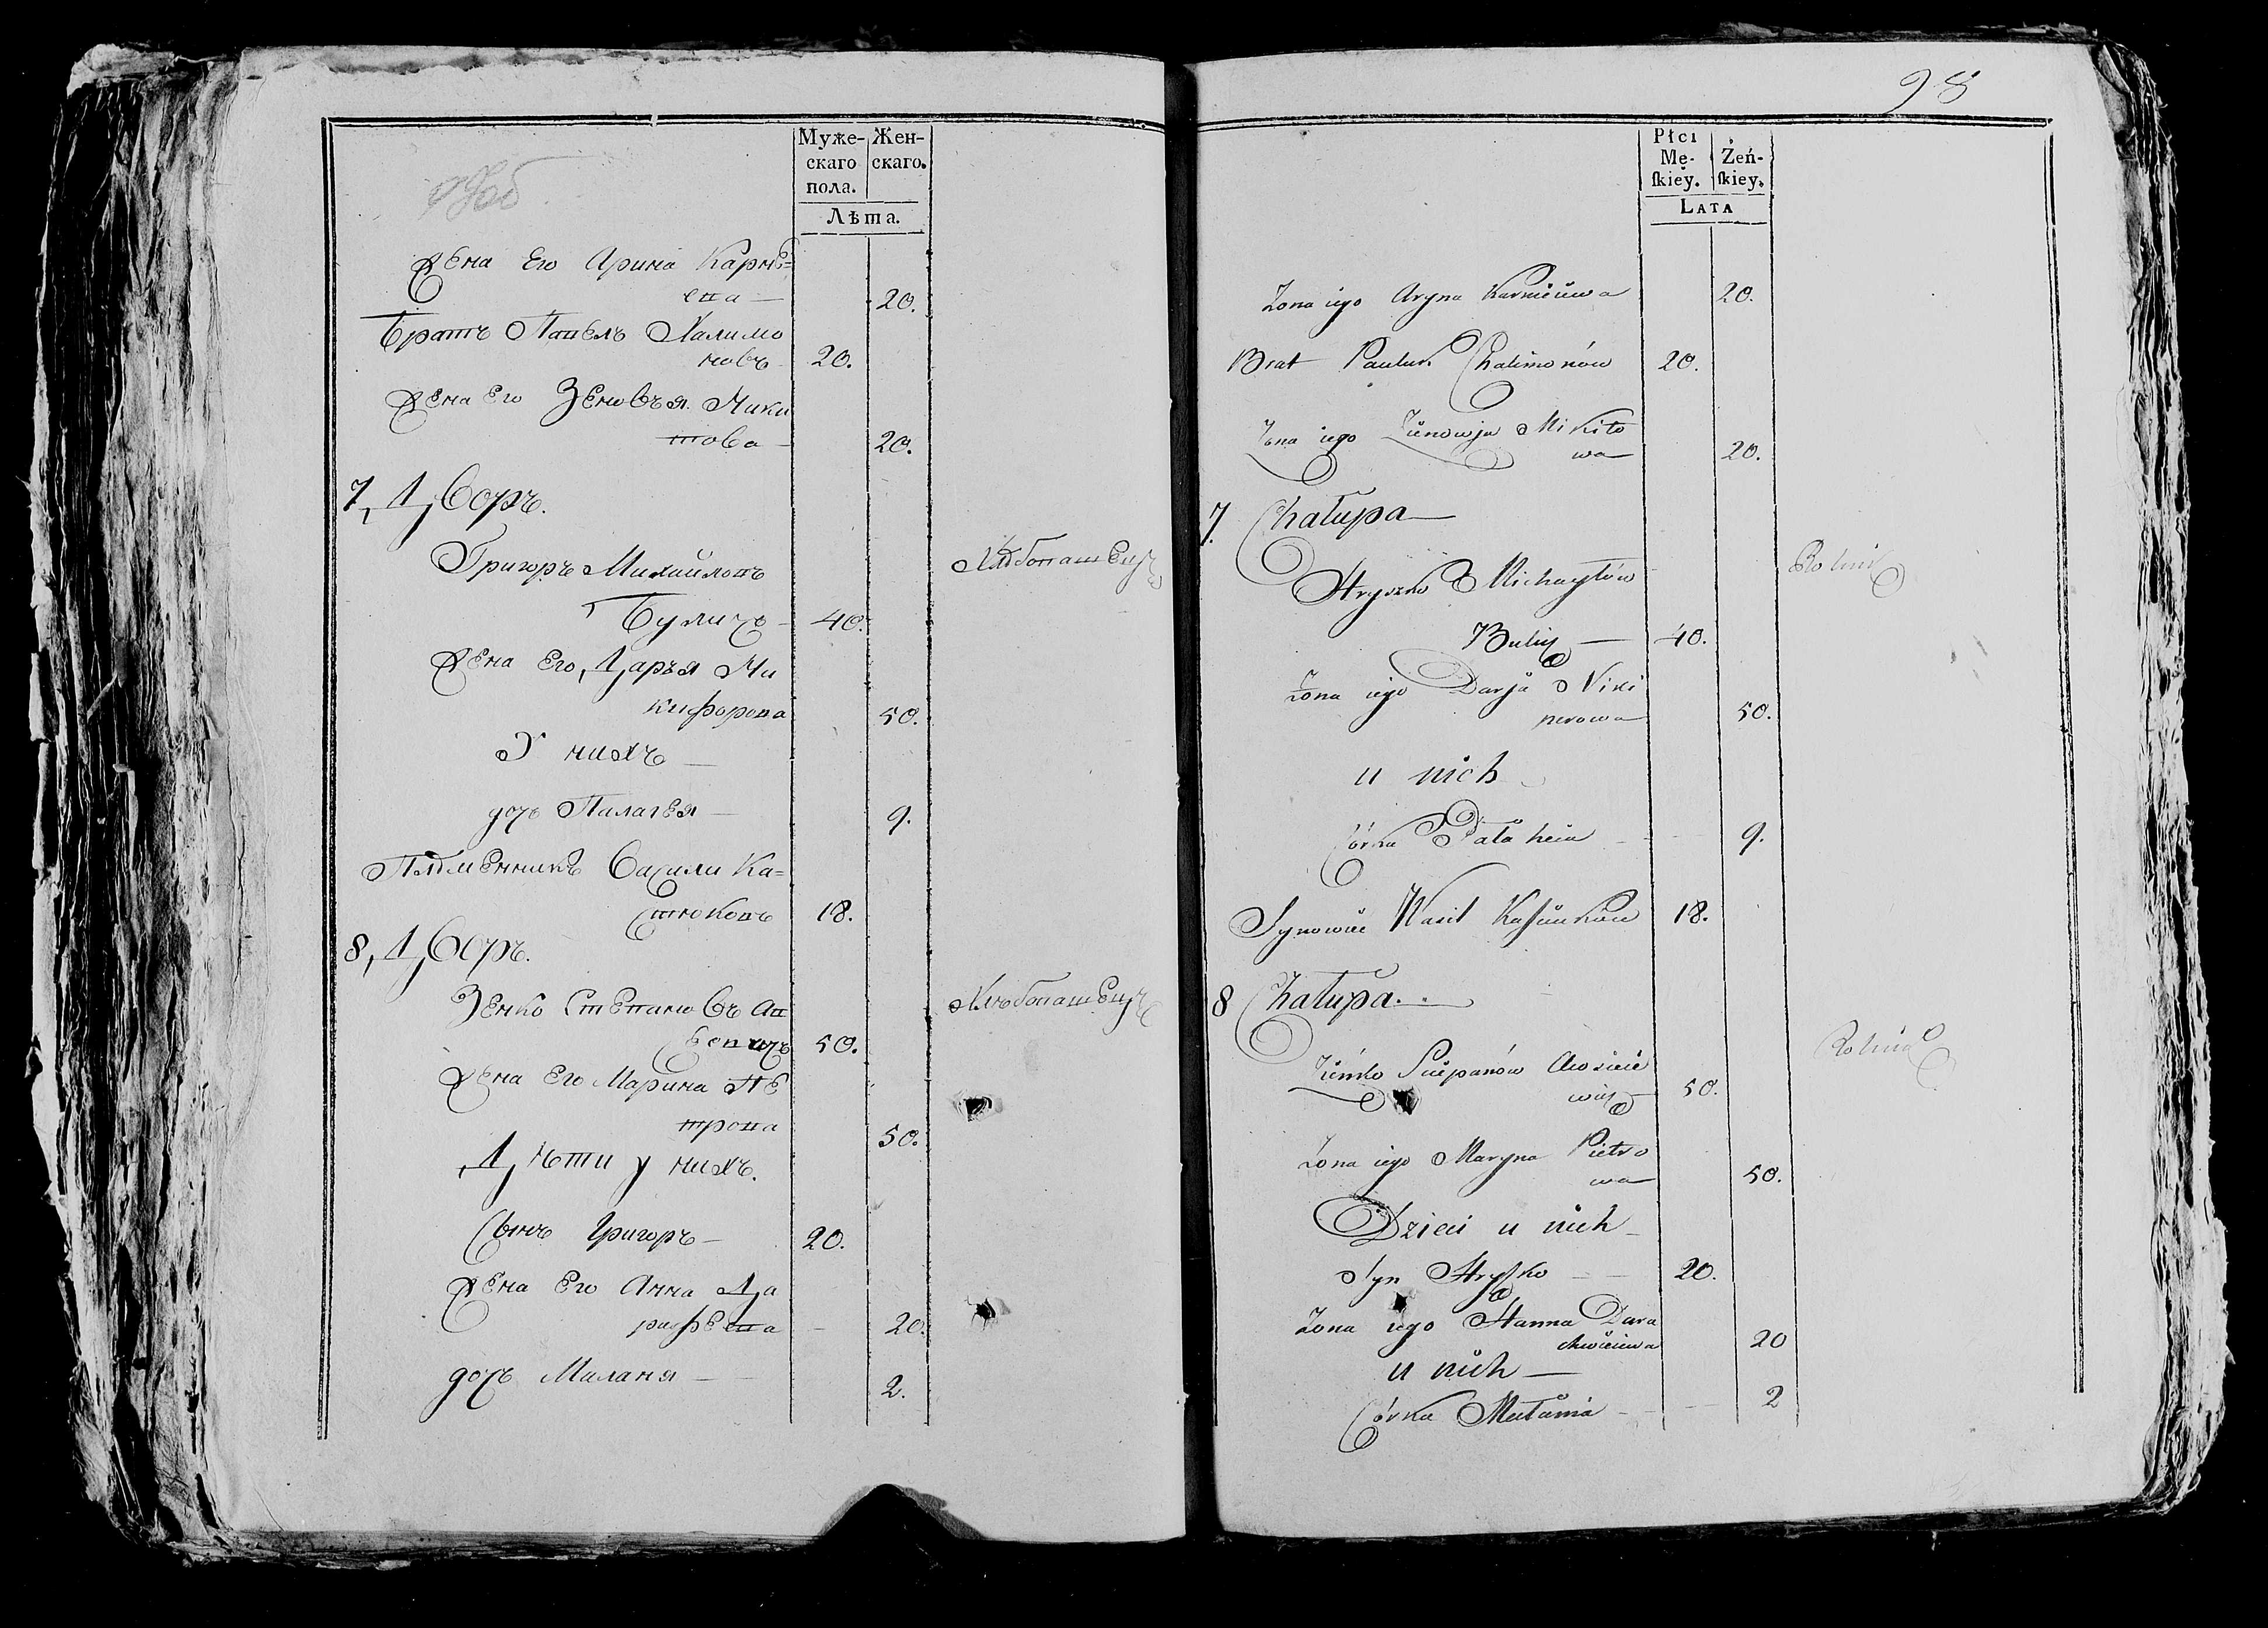 Муже- Жен-
скаго скаго.
пола.
Лѣта.
Жена Его Арина Карнѣ=
ева — 20.
Братъ Павелъ Халимо
новъ 20.
Жена Его Зеновья Мики
това — 20.
7, Дворъ.
Григоръ Михайловъ Хлѣбопашецъ
Буличъ — 40.
Жена Его Дарья Ни
кифорова 50.
У нихъ —
дочь Палагея — 9.
Племенникъ Васили Ка=
стюковъ 18.
8, Дворъ.
Зенко Степановъ Ав Хлѣбопашецъ
50.
Жена Его Марина Пе
трова 50.
Дѣти у нихъ.
Сынъ Григоръ — 20.
Жена Его Анна Да
рафеева — 20.
дочь Маланя — 2.
98
Płci
Mę- Żeń-
ſkiey. ſkiey.
LATA
Żona iego Aryna Karnieiewa 20.
Brat Pauluk Chalimonów 20.
Żona iego Zienowja Mikito
wa 20.
7 Chałupa —
Hryszko Michayłów Rolnik
Bulicz — 40.
Żona iego Darja Niki
perowa 50.
u nich
Córka Pałaheia — 9.
Synowiec Wasil Kaściukow 18.
8 Chałupa. —
Zieńko Sciepanów Awsieie Rolnik
wicz 50.
Żona iego Maryna Pietro
wa 50.
Dzieci u nich
Syn Hryśko — 20.
Żona iego Hanna Dara
chwieiewa 20
u nich —
Córka Małania — 2